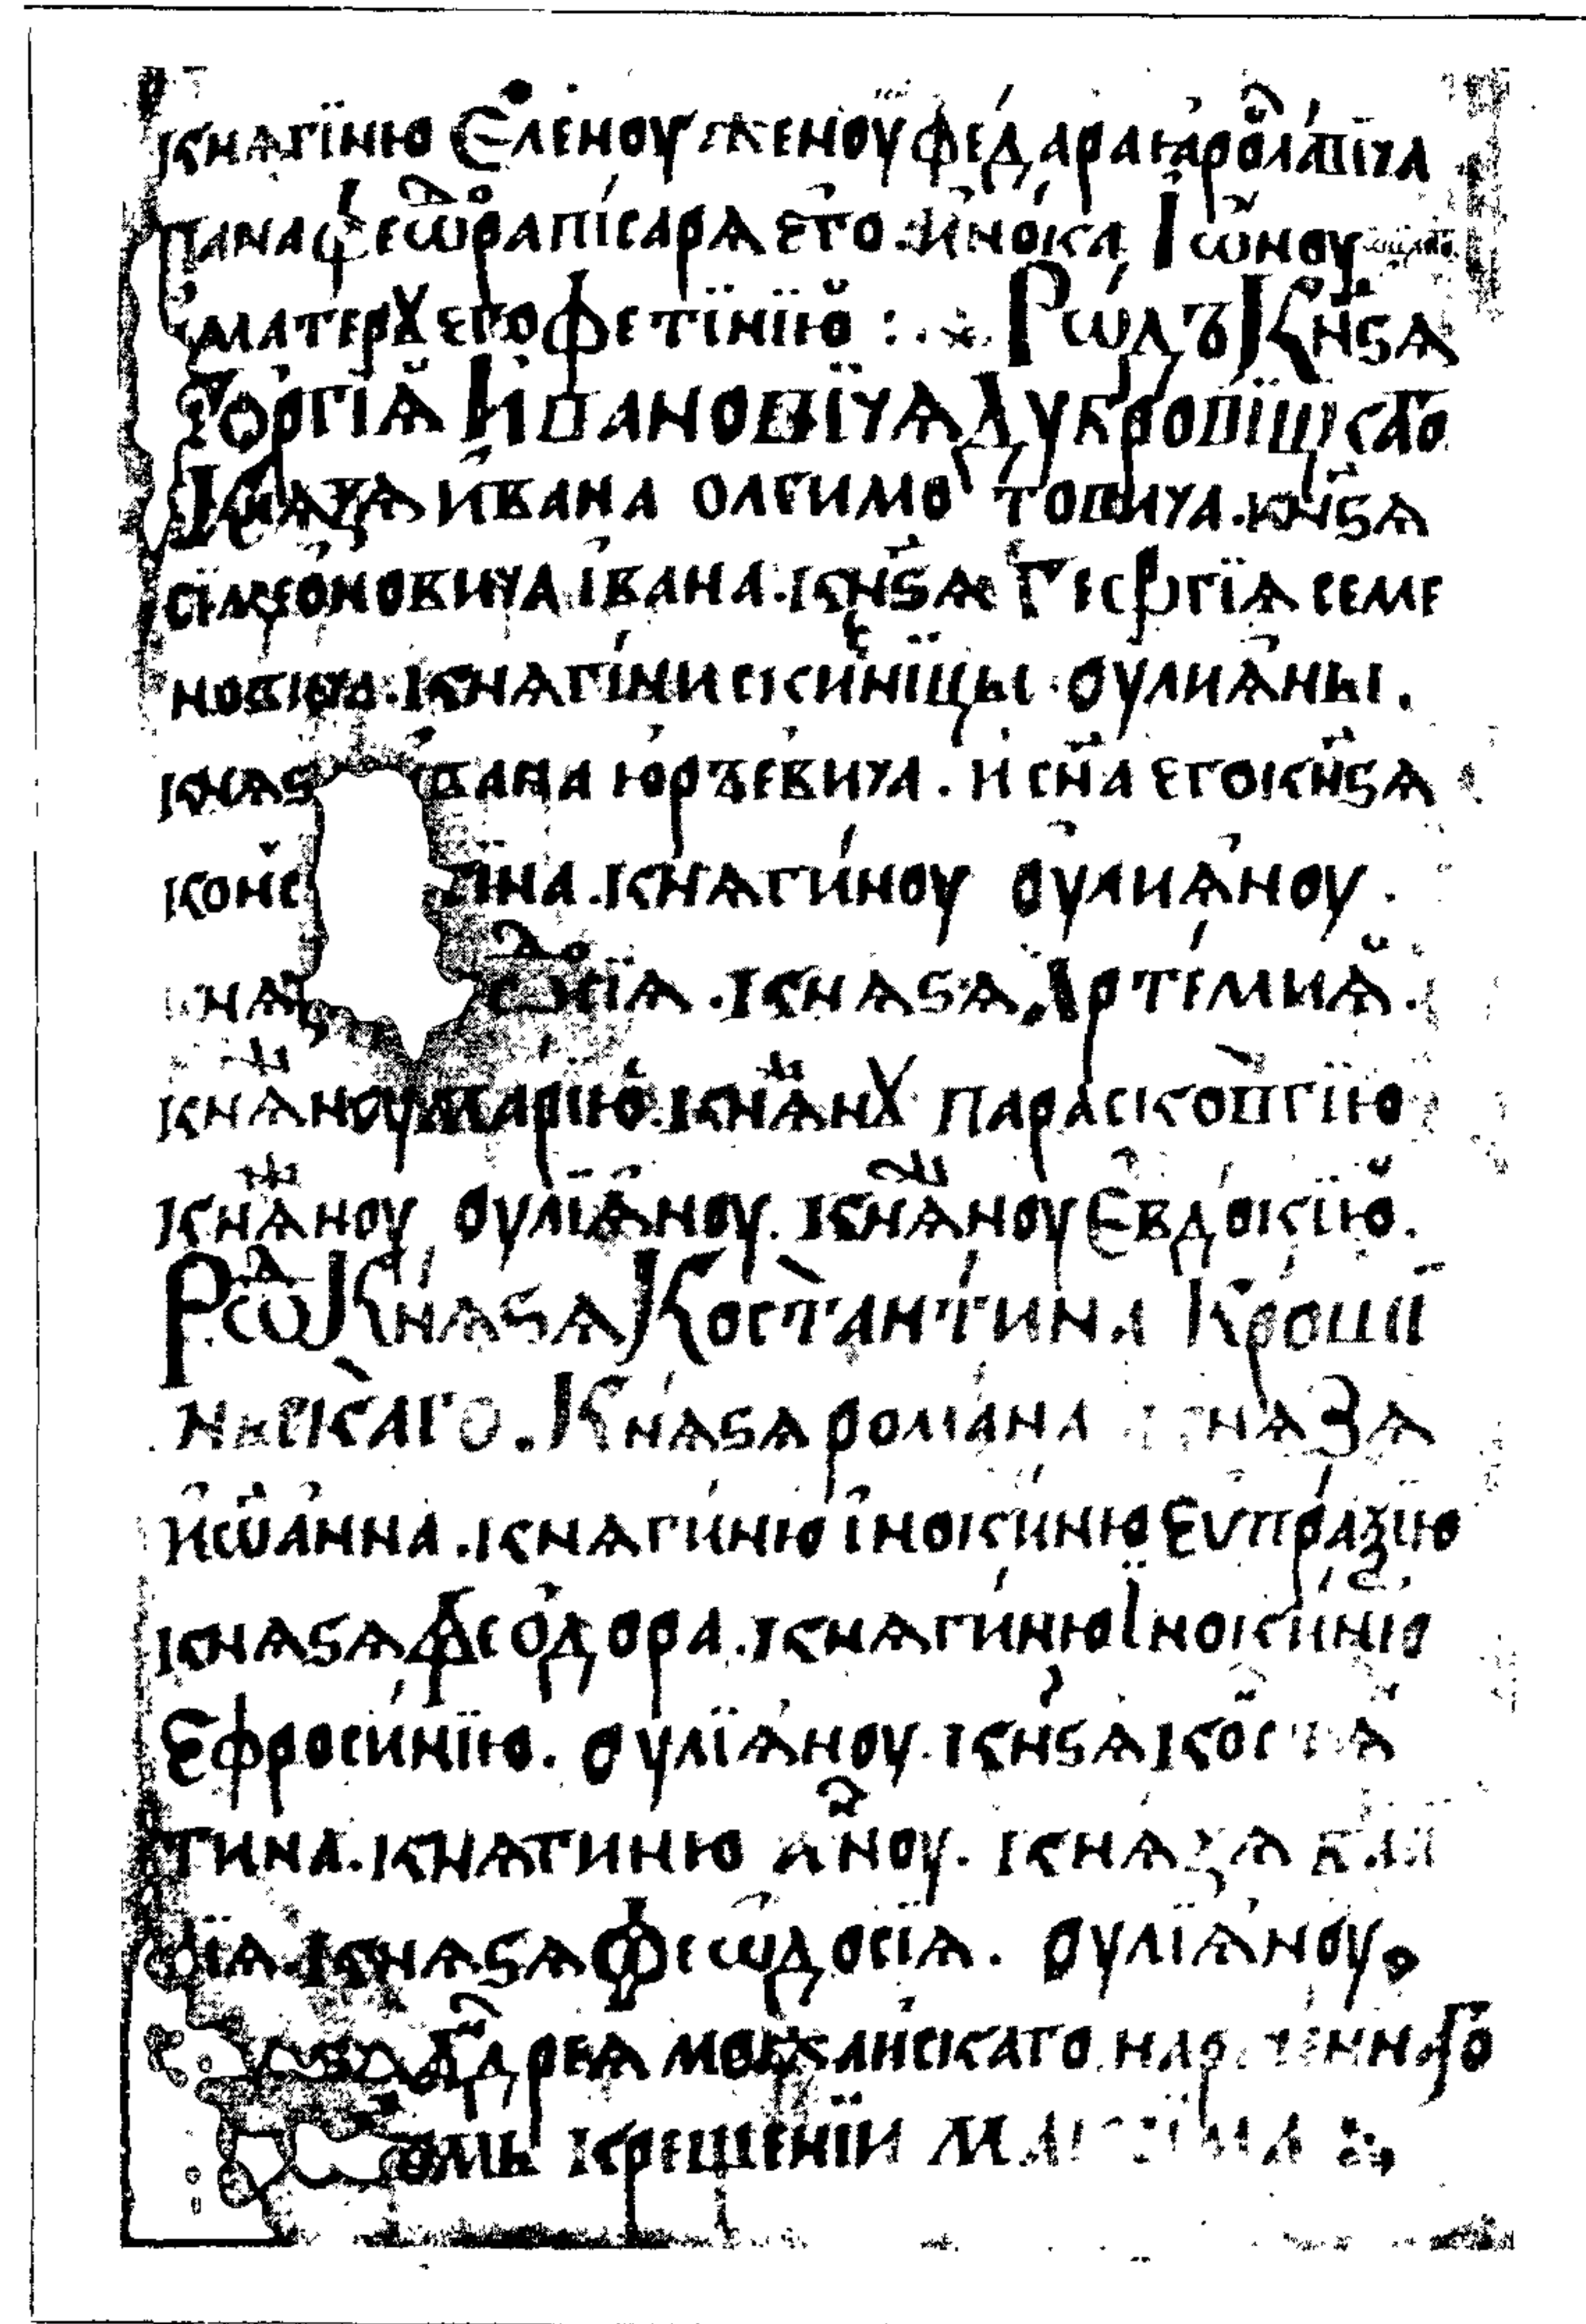 кнѧгїню Єленоу женоу федара ꙗроⷧ҇авїча
пана феѡⷣра пісарѧ его. Инока Іѡноу
матерꙋ его фетїнїю : Рѡдъ Кнѕѧ
Їоргїѧ Ивановїчѧ Дубровїцкаго
Кнѧзѧ Ивана Олгимотовича. кнѕѧ
Сїмеоновича івана. кнѕѧ Геѡргїѧ семе
новіча. кнѧгіни скиниїцы оулиѧны.
кнѧѕ вана юръевича. и сн҃а его кнѕѧ
конс ина. кнѧгиноу оулиѧноу.
кнѧ ѡⷣсїѧ. кнѧѕѧ Артемиѧ.
кнѧⷢноу марїю. кнѧⷢнꙋ Парасковгїю
кнѧⷢноу оулїѧноу. кнѧⷢноу Євдокїю.
Рѡⷣ Кнѧѕѧ Костантина Кроши
ньскаго. Кнѧѕѧ романа кнѧзѧ
Иѡанна. кнѧгиню інокиню Єѵпраѯию
кнѧѕѧ Феодора. кнѧгиню Інокиню
Єфросинїю. оулїѧноу. кнѕѧ костѧ
тина. кнѧгиню аⷩноу. кнѧзѧ
фїѧ. кнѧѕѧ Феѡдосїѧ. оулїѧноу,
ѕѧ Адреѧ можанскаго нареченнаго
омь крещенїи Маѯїма